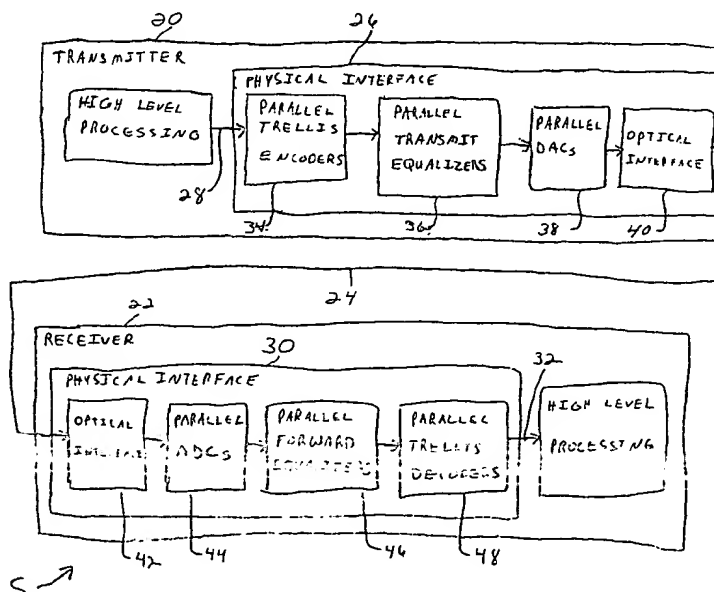 20
26
TRANSMITTER
PHYSICAL INTERFACE
HIGH LEVEL
PROCESSING
PARALLEL
TRELLIS
ENCODERS
PARALLEL
TRANSMIT
EQUALIZERS
PARALLEL
DACs
OPTICAL
INTERFACE
28
34
36
38
40
24
22
RECEIVER
30
32
PHYSICAL INTERFACE
OPTICAL
PARALLEL
ADCs
PARALLEL
FORWARD
EQUALIZERS
PARALLEL
TRELLIS
DECODERS
HIGH LEVEL
PROCESSING
42
44
46
48